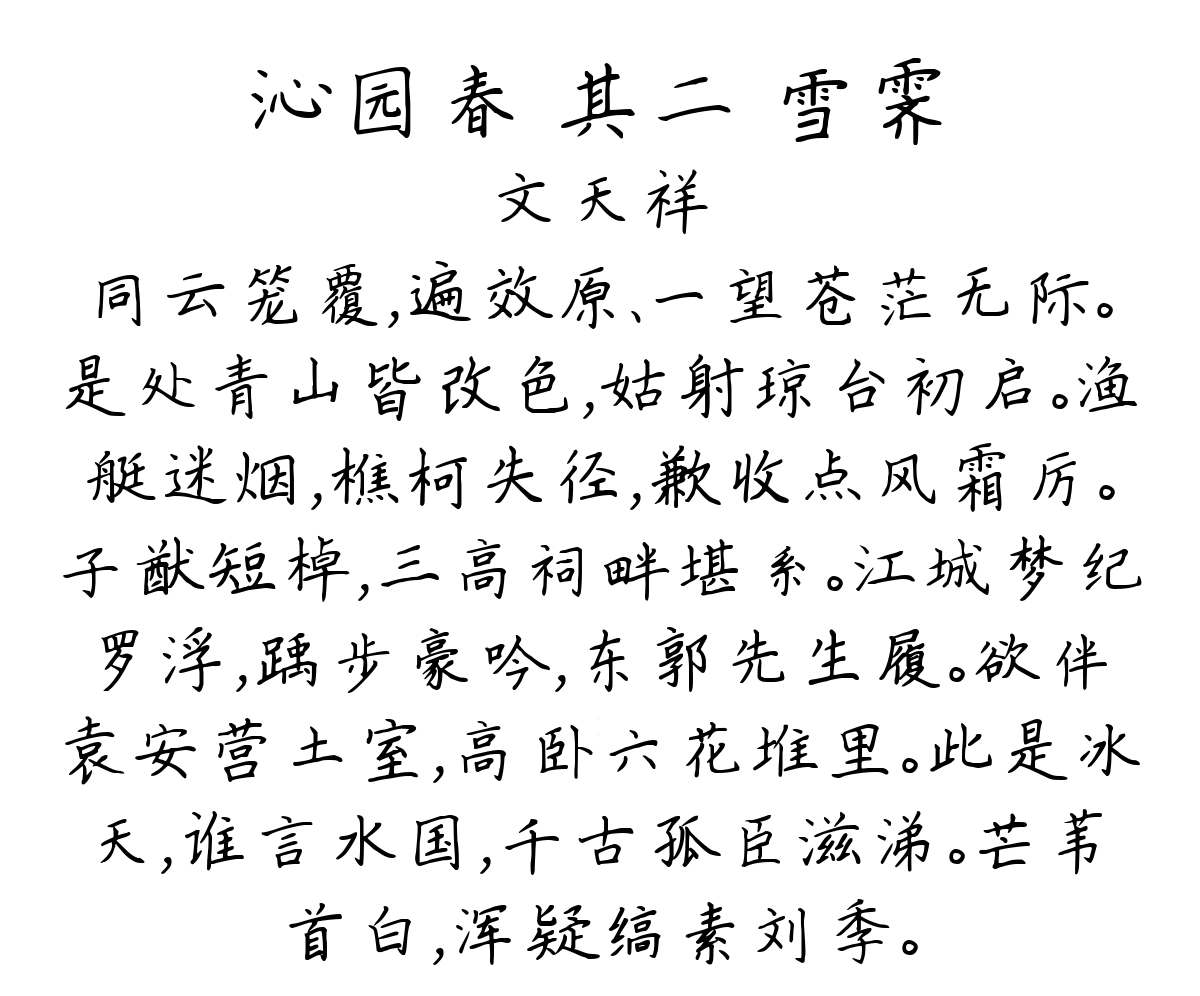 沁园春 其二 雪霁
文天祥
同云笼覆,遍效原、一望苍茫无际。
是处青山皆改色,姑射琼台初启。渔
艇迷烟,樵柯失径,歉收点风霜厉。
子猷短棹,三高祠畔堪系。江城梦纪
罗浮,踽步豪吟,东郭先生履。欲伴
袁安营土室,高卧六花堆里。此是冰
天,谁言水国,千古孤臣滋涕。芒苇
首白,浑疑缟素刘季。